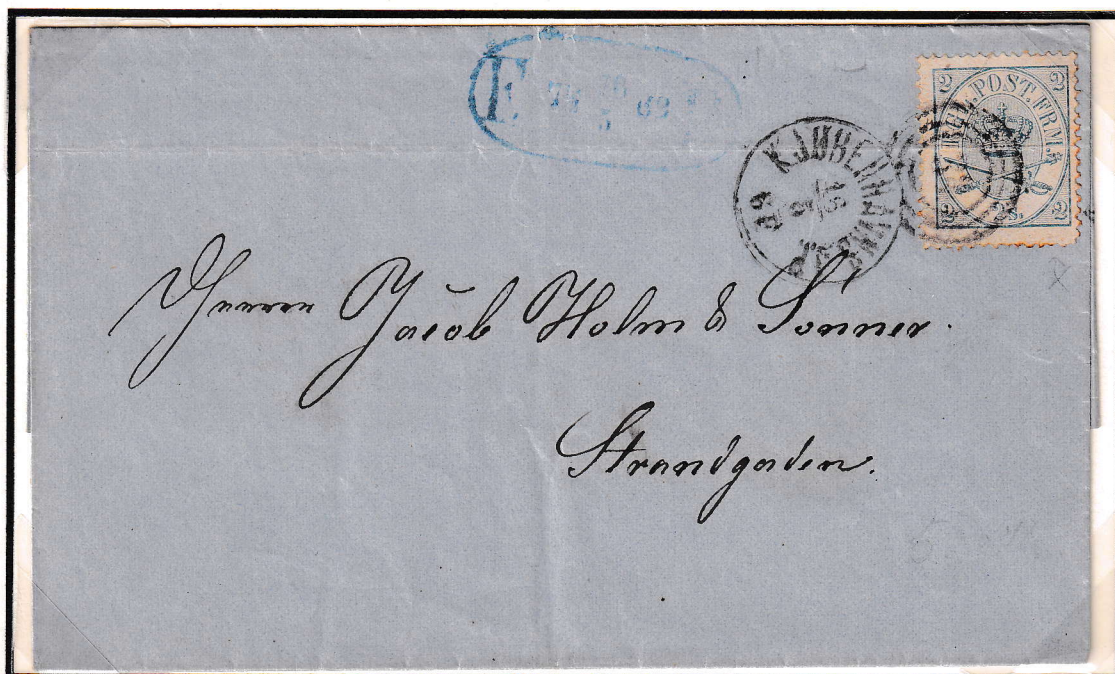 F.
69
KJØBENHAVN
69
2 2
KGL. POST. FRM.
2 S. 2
Herrer Jacob Holm & Sønner.
Strandgaden.